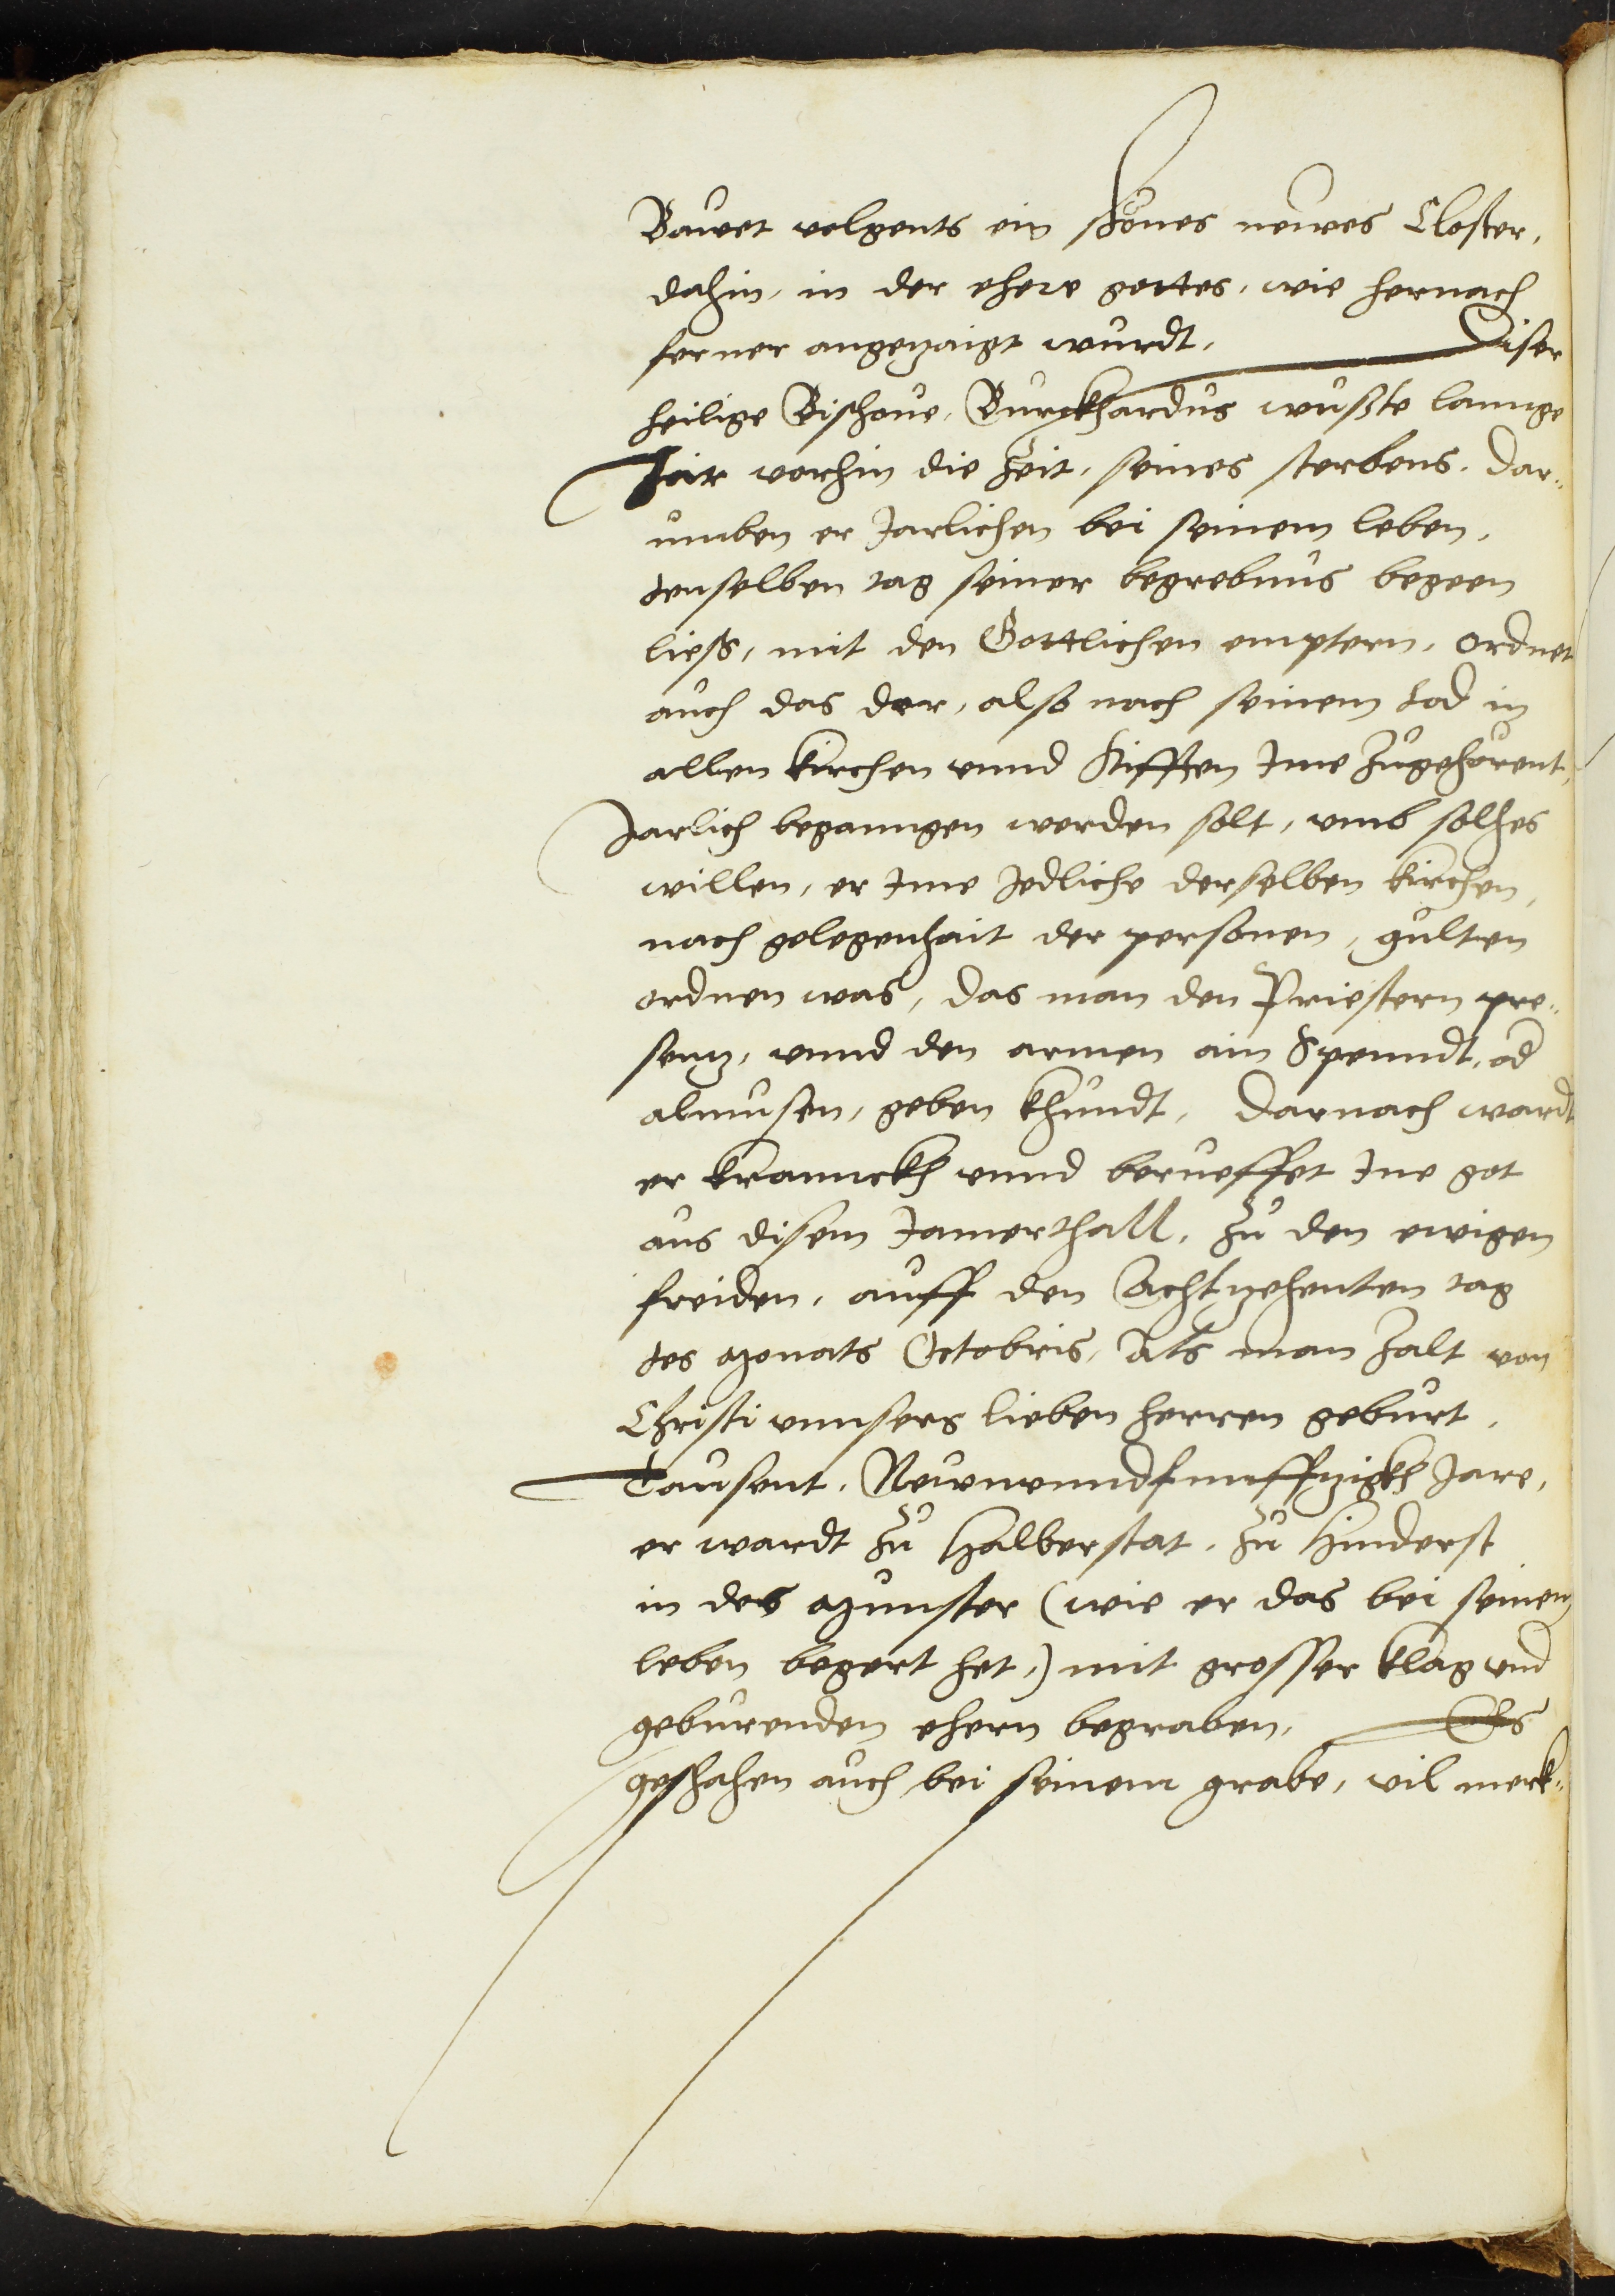 Bauwet volgents ein schönes neuwes Closter,
dahin, in der ehere gottes, wie hernach
ferner angezaigt wurdt, Diser
heilige Bischoue, Burckhardus wußte lannge
Jar vorhin die Zeit, seines sterbens, dar„
umben er Jarlichen bei seinem leben,
denselben tag seiner begrebnus begeen
ließ, mit den Gottlichen emptern, ordnet
auch das der, also nach seinem tod in
allen kirchen vnnd Stifften Ime zugehörent,
Jarlich beganngen werden solt, vmb solches
willen, er Ime Jedliche derselben kirchen,
nach gelegenhait der personen, gulten
ordnen was, das man den Priestern pre„
senz, vnnd den armen ain Spenndt, od
almusen, geben khundt, darnach wardt
er krannckh vnnd berueffet Ine got
aus disem Jamerthall, zu den ewigen
freiden, auff den Achtzehenten tag
des Monats Octobris, als man zalt von
Christi vnnsers lieben herren geburt,
Tausent, Neunvnndfunffzigkh Jare,
er wardt zu Halberstat, zu Hinderst
in des Munster (wie er das bei seinem
leben begert het,) mit grosser klag vnd
geburenden ehern begraben, Es
geschahen auch bei seinem grabe, vil merk„